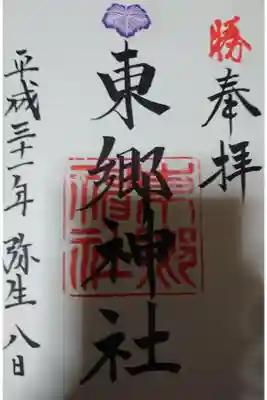 勝
奉拝
東郷神社
東郷神社
平成三十一年 弥生 八日